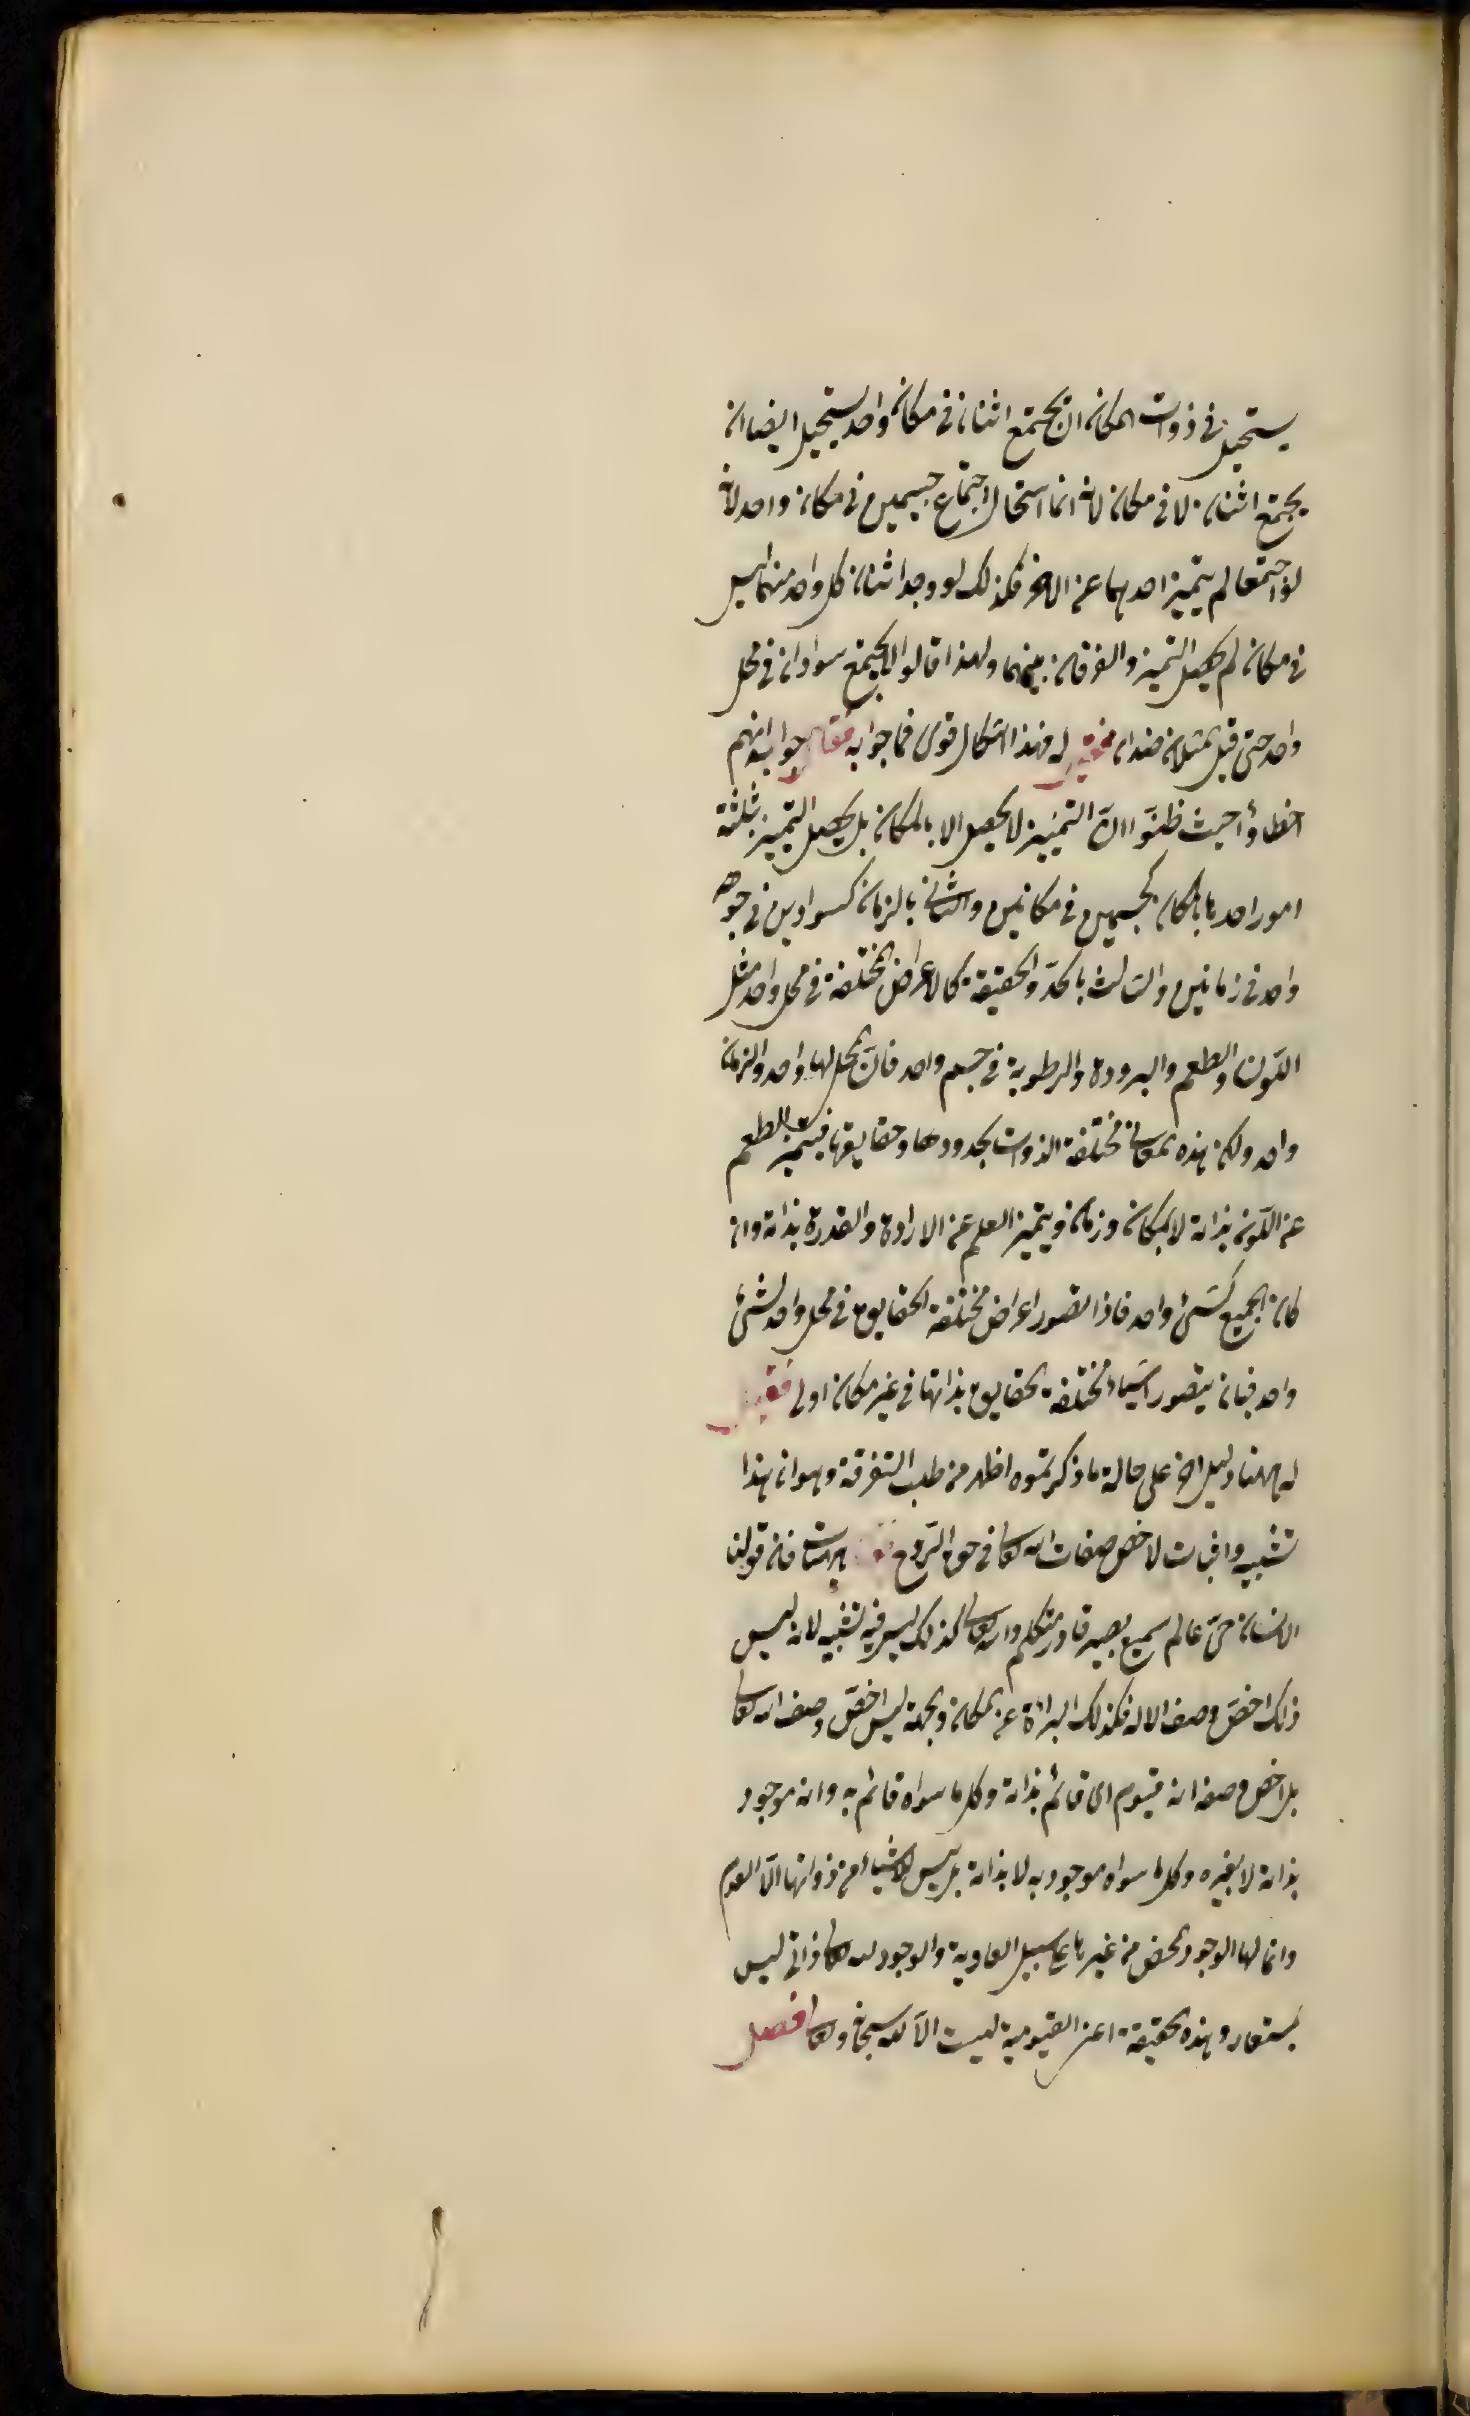 يستحيل في ذوات المكان ان يجتمع اثنان في مكان واحد يستحيل ايضا ان
يجتمع اثنان لا في مكان لانه انما استحال اجتماع جسمين في مكان واحد لانه
لو اجتمعا لم يتميز احدهما عن الاخر فكذلك لو وجد اثنان كل واحد منهما ليس
في مكان لم يحصل التميز والفرقان بينهما ولهذا قالوا لا يجتمع سوادان في محل
واحد حتى قيل المثلان ضدان فقيل له فهذا اشكال قوي فما جوابه فقال جوابه انهم
اخطاؤا حيث ظنوا ان التميز لا يحصل الا بالمكان بل يحصل التميز بثلثة
امور احدها بالمكان كجسمين في مكانين والثاني بالزمان كسوادين في جوهر
واحد في زمانين والثالث بالحد والحقيقة كالاعراض المختلفة في محل واحد مثل
اللون والطعم والبرودة والرطوبة في جسم واحد فان المحل لها واحد والزمان
واحد ولكن هذه معان مختلفة الذوات بحدودها وحقايقها فيتميز الطعم
عن اللون بذاته لا بمكان وزمان ويتميز العلم عن الارادة والقدرة بذاته وان
كان الجميع كشئ واحد فاذا تصور اعراض مختلفة الحقايق في محل واحد لشئ
واحد فبان يتصور اشياء مختلفة الحقايق بذاتها في غير مكان اولى فقيل
له ههنا دليل اخر على حالة ما ذكرتموه اظهر من طلب التفرقة وهو ان هذا
تشبيه واثبات لاخص صفات الله تعالى في حق الروح فقال هيهات فان قولنا
الانسان حيّ عالم سميع بصير قادر متكلم والله تعالى كذلك ليس فيه تشبيه لانه ليس
ذلك اخصّ وصف الاله فكذلك البراءة عن المكان والجهة ليس اخصّ وصف الله تعالى
بل اخص وصفه انه قيوم اى قائم بذاته وكل ما سواه قائم به وانه موجود
بذاته لا بغيره وكل ما سواه موجود به لا بذاته بل ليس للاشياء من ذواتها الا العدم
وانما لها الوجود المحض من غيرها على سبيل العارية والوجود لله تعالى ذاتي ليس
بمستعار وهذه الحقيقة اعنى القيومية ليست الا لله سبحانه وتعالى فصل